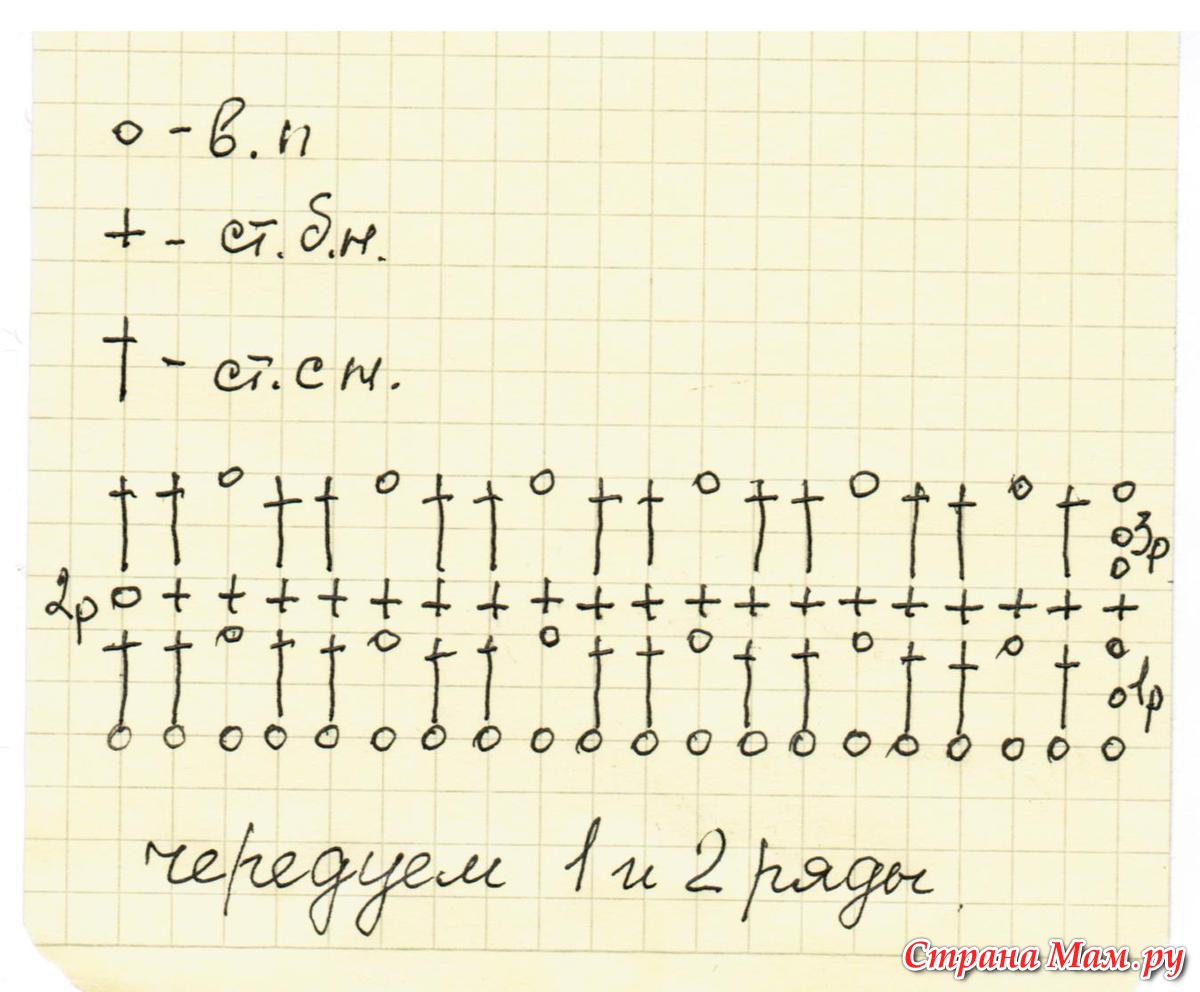 o - в.п
+ - ст.б.н.
† - ст.с н.
3р
2р
1р
чередуем 1 и 2 ряды.
Страна Мам.ру